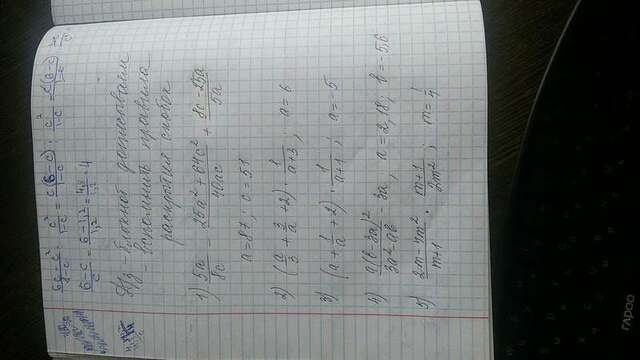 6c - c² / 1-c : c² / 1-c = c(6-c) / 1-c : c² / 1-c = c(6-c) / 1-c
6-c / c = 6-1,2 / 1,2 = 4,8 / 1,2 = 4
Дз - блокнот дописываем
- вспомнить правила
раскрытия скобок
1) 5a / 8c - 25a² + 64c² / 40ac + 8c - 25a / 5a
a = 87; c = 51
2) (a/3 + 3/a + 2) · 1 / a+3; a = 6
3) (a + 1/a + 2) · 1 / a+1; a = -5
4) a(b-3a)² / 3a² - ab - 3a, a = 2,18; b = -5,6
5) 2m - 4m² / m+1 · m+1 / 2m²; m = 1/4